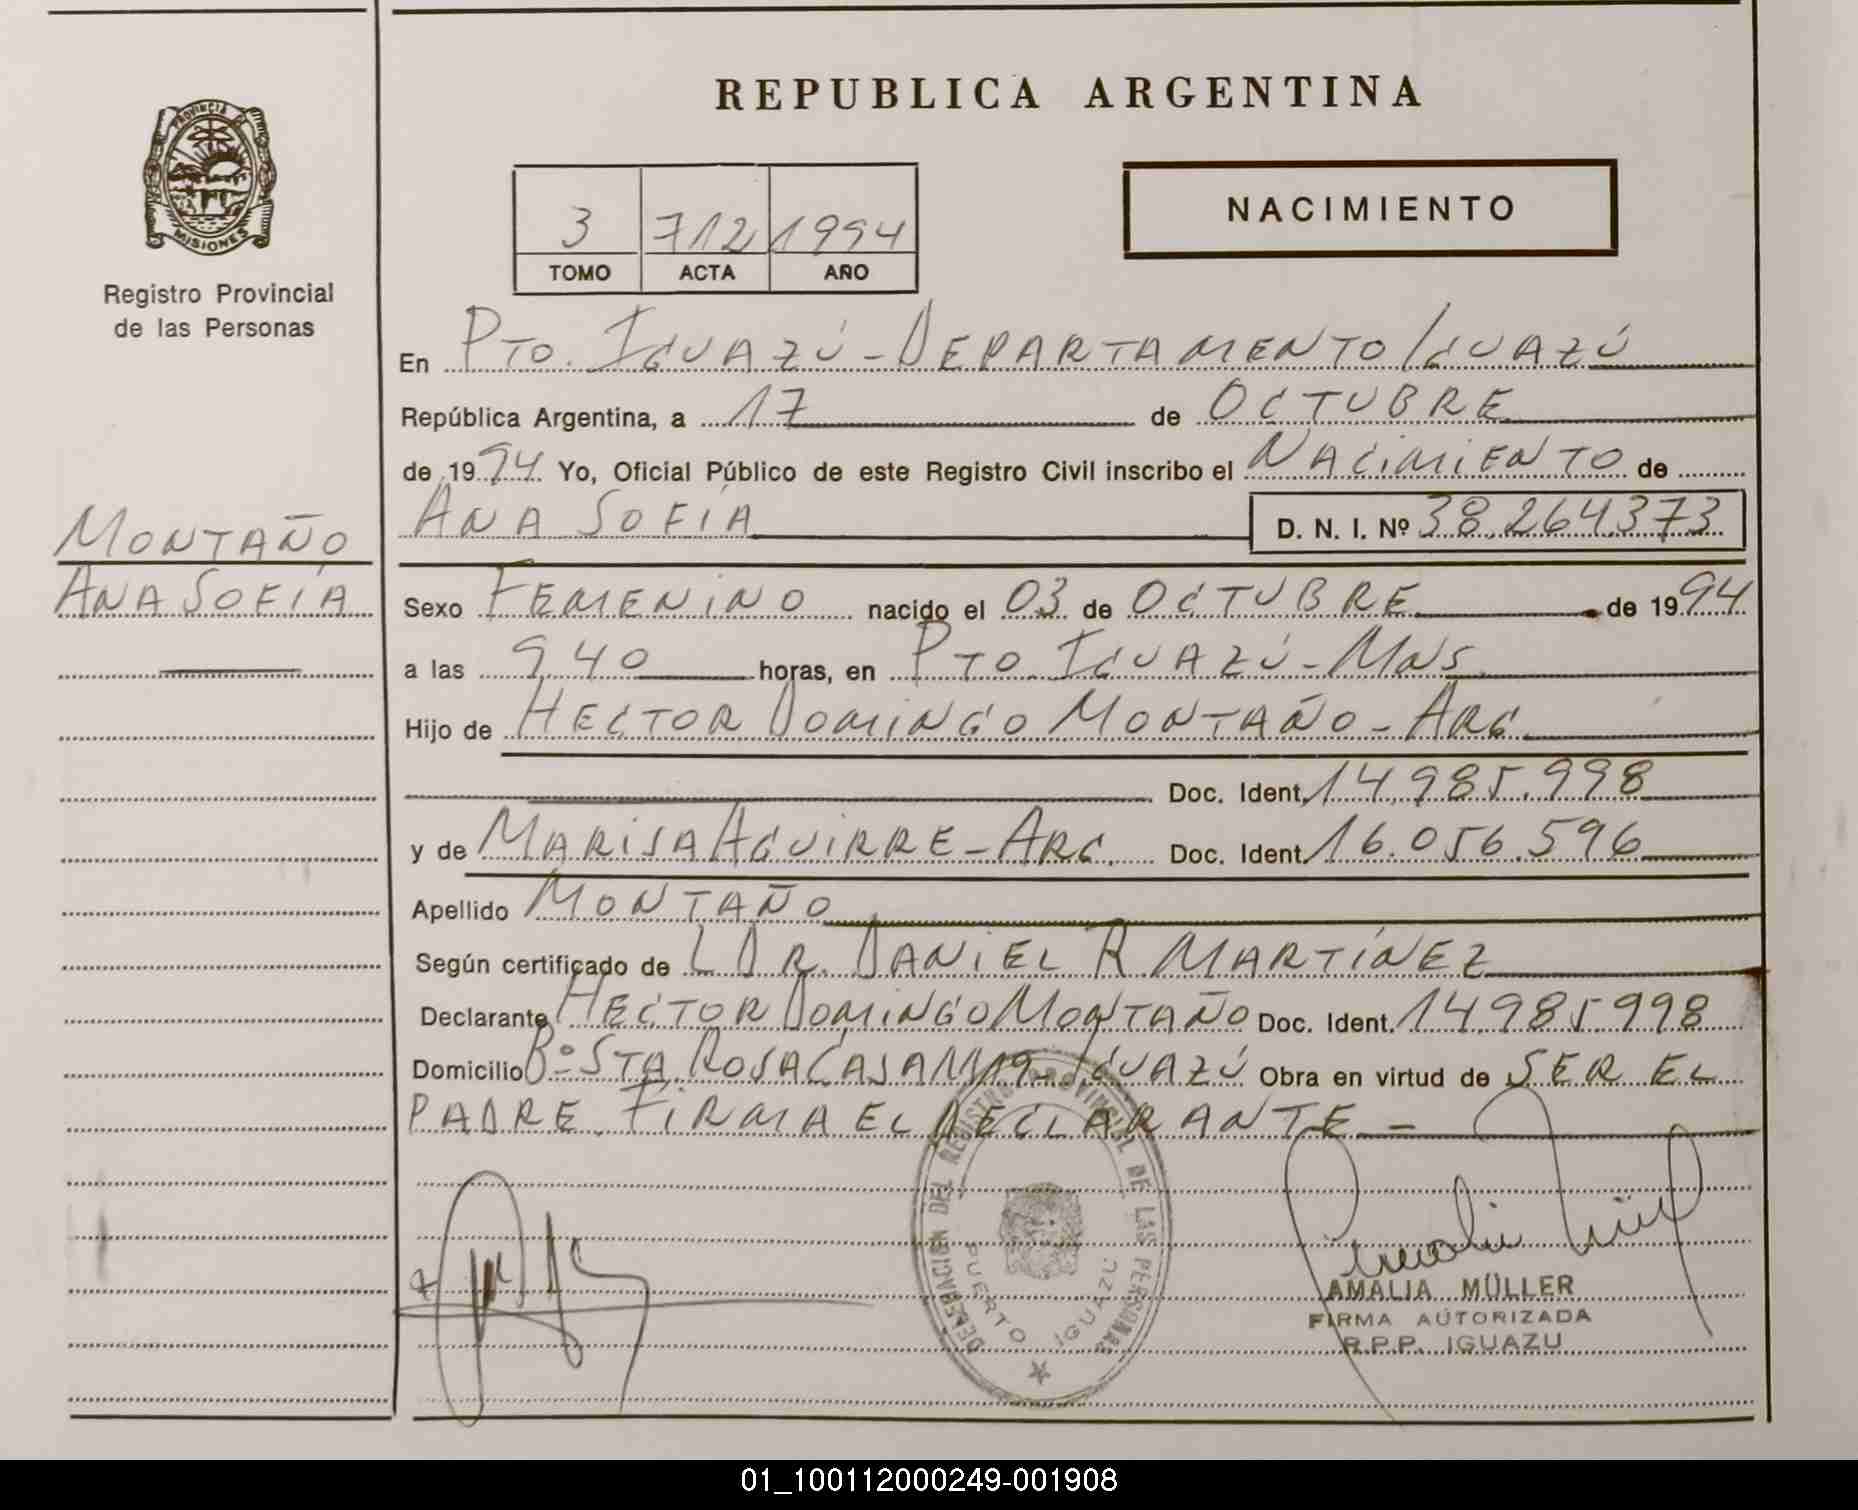 REPUBLICA ARGENTINA
PROVINCIA DE
MISIONES
Registro Provincial
de las Personas
NACIMIENTO
3 712 1994
TOMO ACTA AÑO
En PTO. IGUAZÚ - DEPARTAMENTO IGUAZÚ
República Argentina, a 17 de OCTUBRE
de 1994 Yo, Oficial Público de este Registro Civil inscribo el NACIMIENTO de
ANA SOFÍA D. N. I. Nº 38.264.373
MONTAÑO
ANA SOFÍA
Sexo FEMENINO nacido el 03 de OCTUBRE de 1994
a las 9,40 horas, en PTO. IGUAZÚ - MNS.
Hijo de HECTOR DOMINGO MONTAÑO - ARG.
Doc. Ident. 14.985.998
y de MARISA AGUIRRE - ARG. Doc. Ident. 16.056.596
Apellido MONTAÑO
Según certificado de L DR. DANIEL R. MARTÍNEZ
Declarante HECTOR DOMINGO MONTAÑO Doc. Ident. 14.985.998
Domicilio Bº STA ROSA CASA 119 - IGUAZÚ Obra en virtud de SER EL
PADRE. FIRMA EL DECLARANTE -
DELEGACION DEL REGISTRO PROVINCIAL DE LAS PERSONAS
PUERTO IGUAZU
AMALIA MÜLLER
FIRMA AUTORIZADA
R.P.P. IGUAZU
01_100112000249-001908